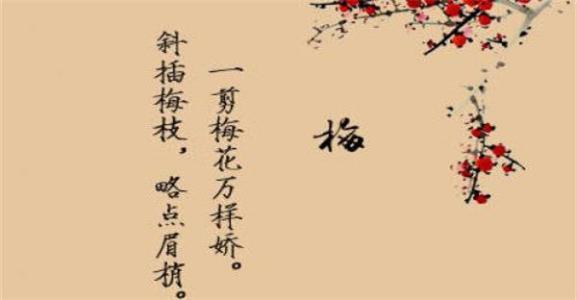 梅
一剪梅花万样娇。
斜插梅枝，略点眉梢。